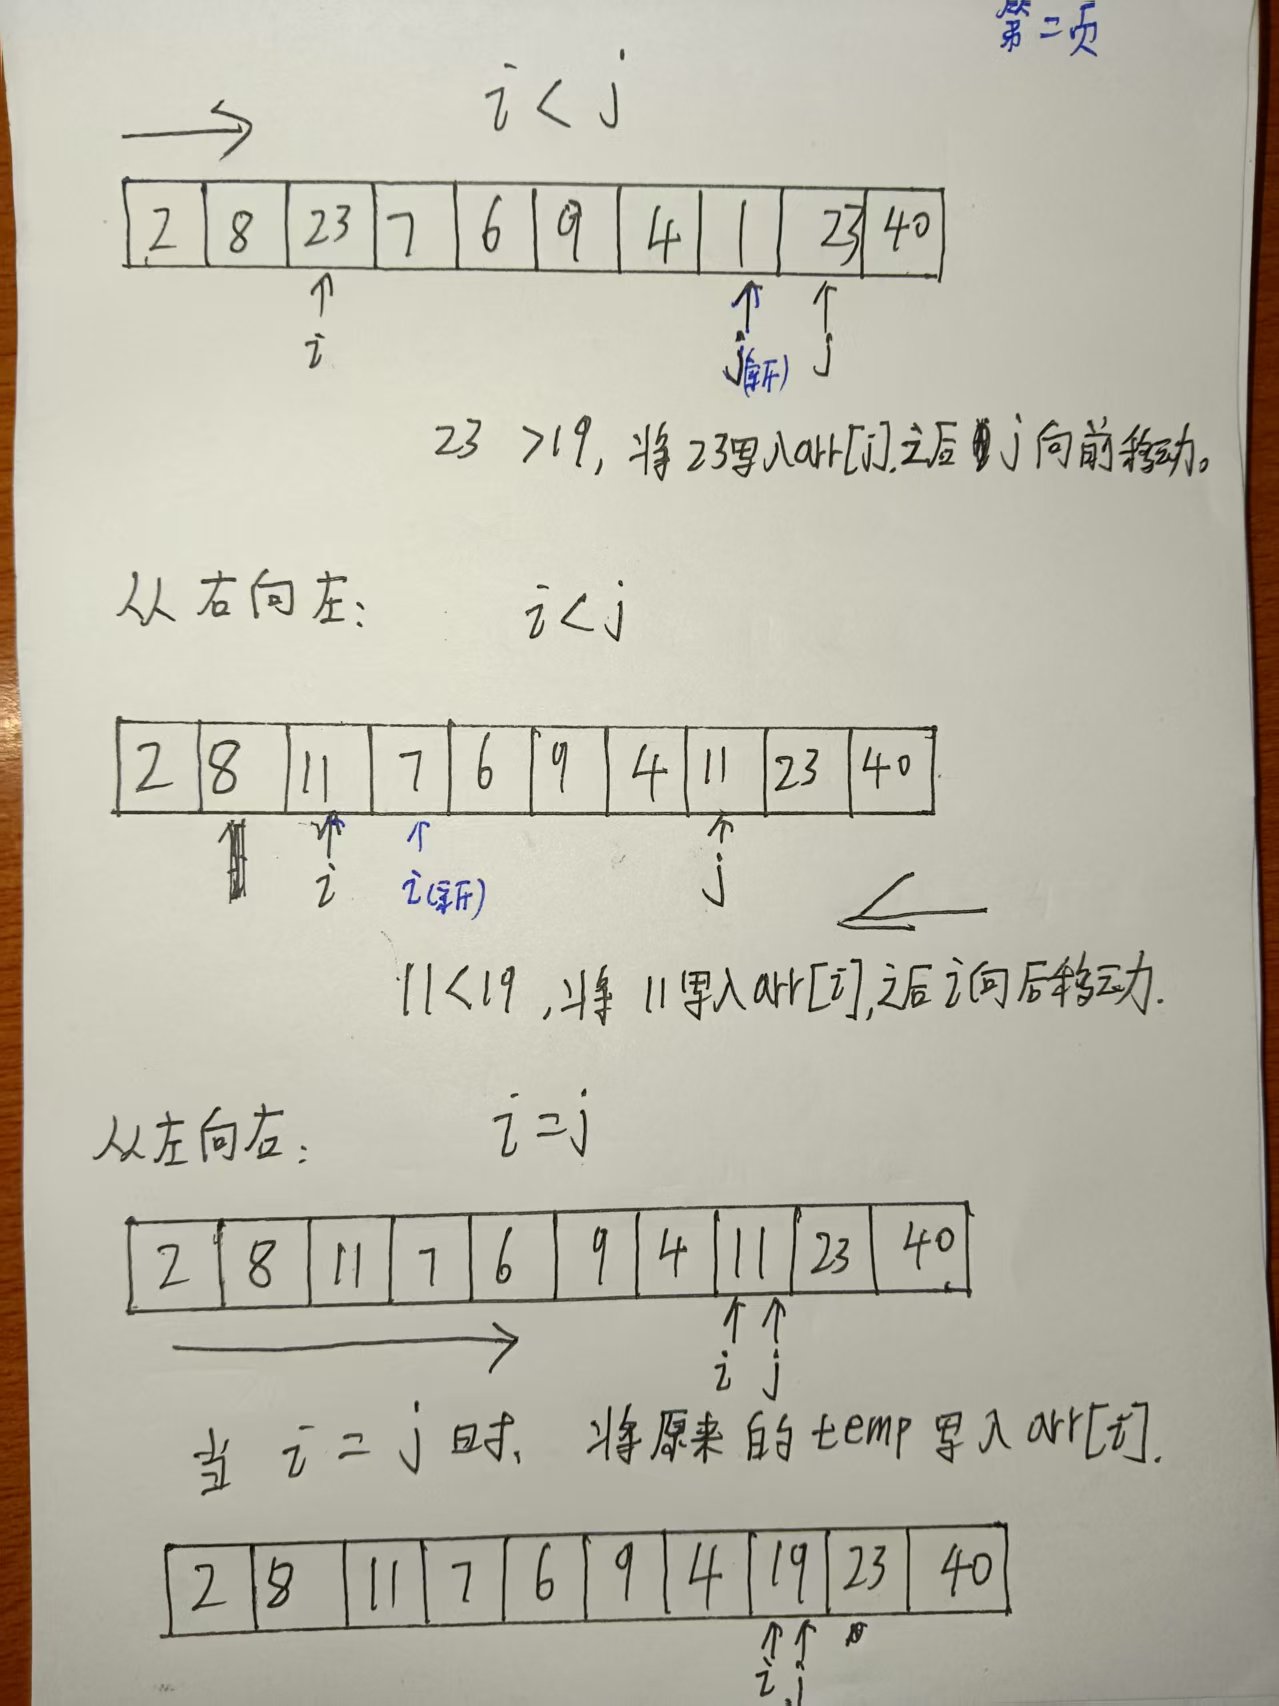 第二页
i < j
2 8 23 7 6 9 4 1 23 40
i j(新) j
23 >19, 将23写入arr[j].之后 j向前移动。
从右向左: i<j
2 8 11 7 6 9 4 11 23 40
i i(新) j
11<19,将 11写入arr[i],之后i向后移动.
从左向右: i=j
2 8 11 7 6 9 4 11 23 40
i j
当 i = j时、将原来的temp写入arr[i].
2 8 11 7 6 9 4 19 23 40
i j